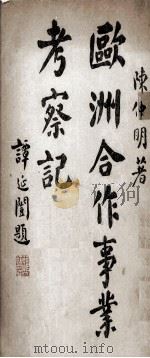 陳仲明著
歐洲合作事業
考察記
譚延闓題
www.mtoou.info